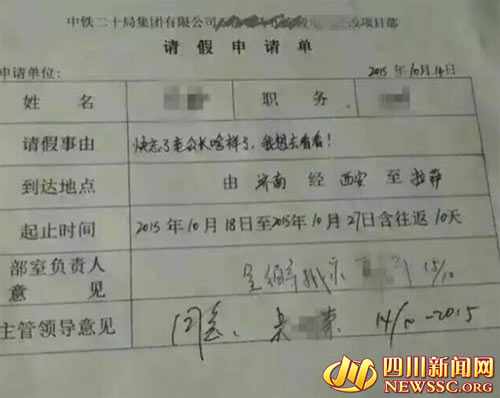 中铁二十局集团有限公司 项目部
请假申请单
申请单位: 2015年10月14日
姓名 职务
请假事由 快忘了老公长啥样了,我想去看看!
到达地点 由 济南 经 西安 至 拉萨
起止时间 2015年10月18日至2015年10月27日含往返10天
部室负责人
意见 15/10
主管领导意见 同意. 14/10-2015
四川新闻网
NEWSSC.ORG